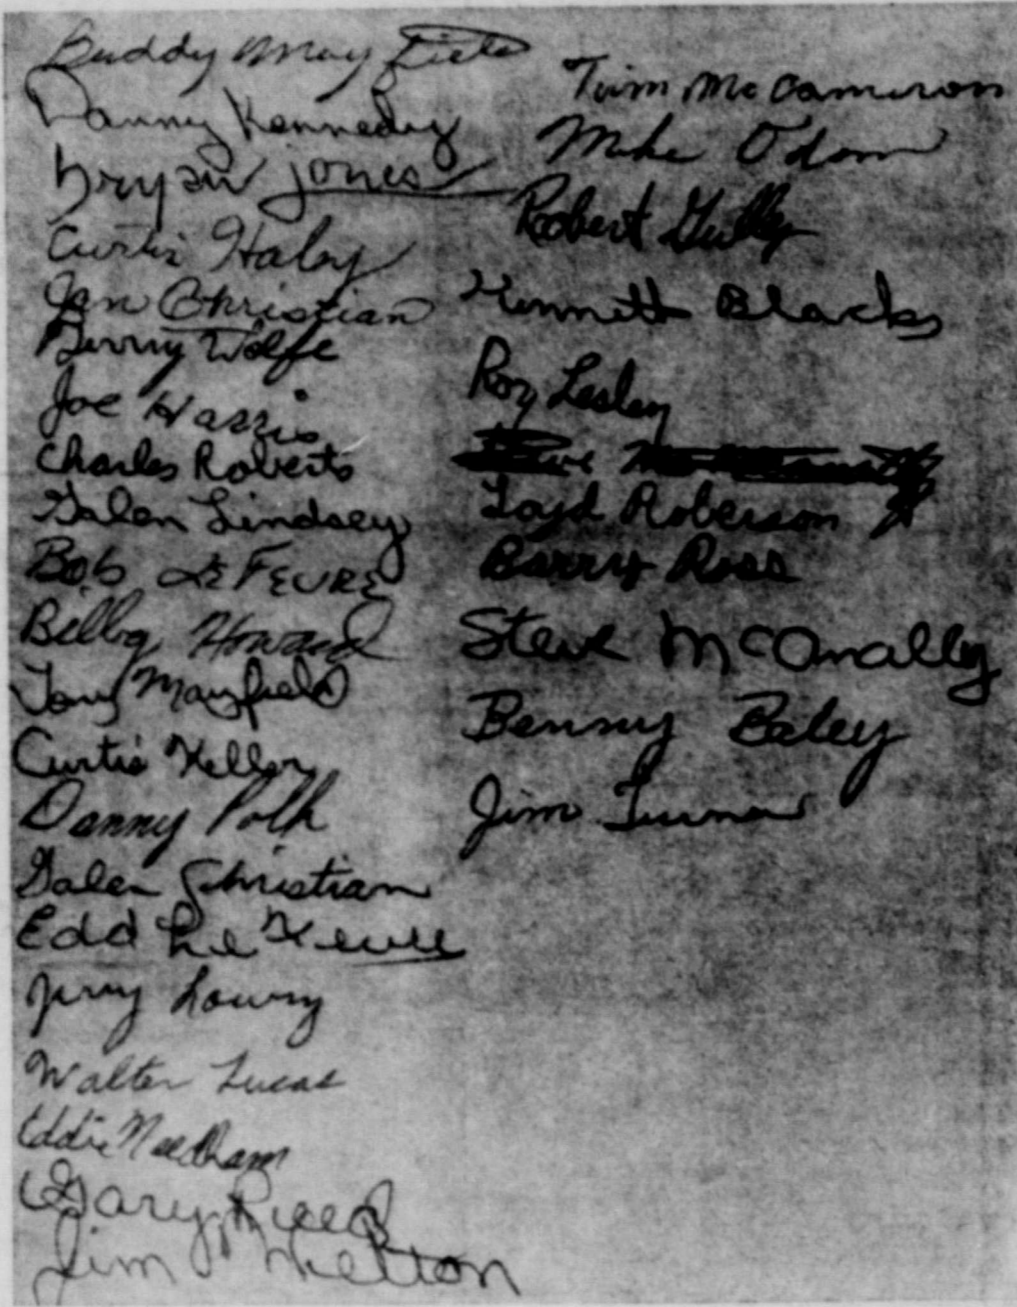 Buddy Mayfield
Danny Kennedy
Bryan Jones
Curtis Haley
Jan Christian
Jerry Wolfe
Joe Harris
Charles Roberts
Galen Lindsey
Bob LeFEVRE
Billy Howard
Tony Mayfield
Curtis Keller
Danny Polk
Galen Christian
Edd Le Fevre
Jerry Lowry
Walter Lucas
Eddie Needham
Gary Reed
Jim Melton
Tim McCameron
Mike Odom
Robert Gully
Kennett Blacks
Roy Lesley
Loyd Roberson
Barry Ross
Steve McAnally
Benny Baley
Jim Turner